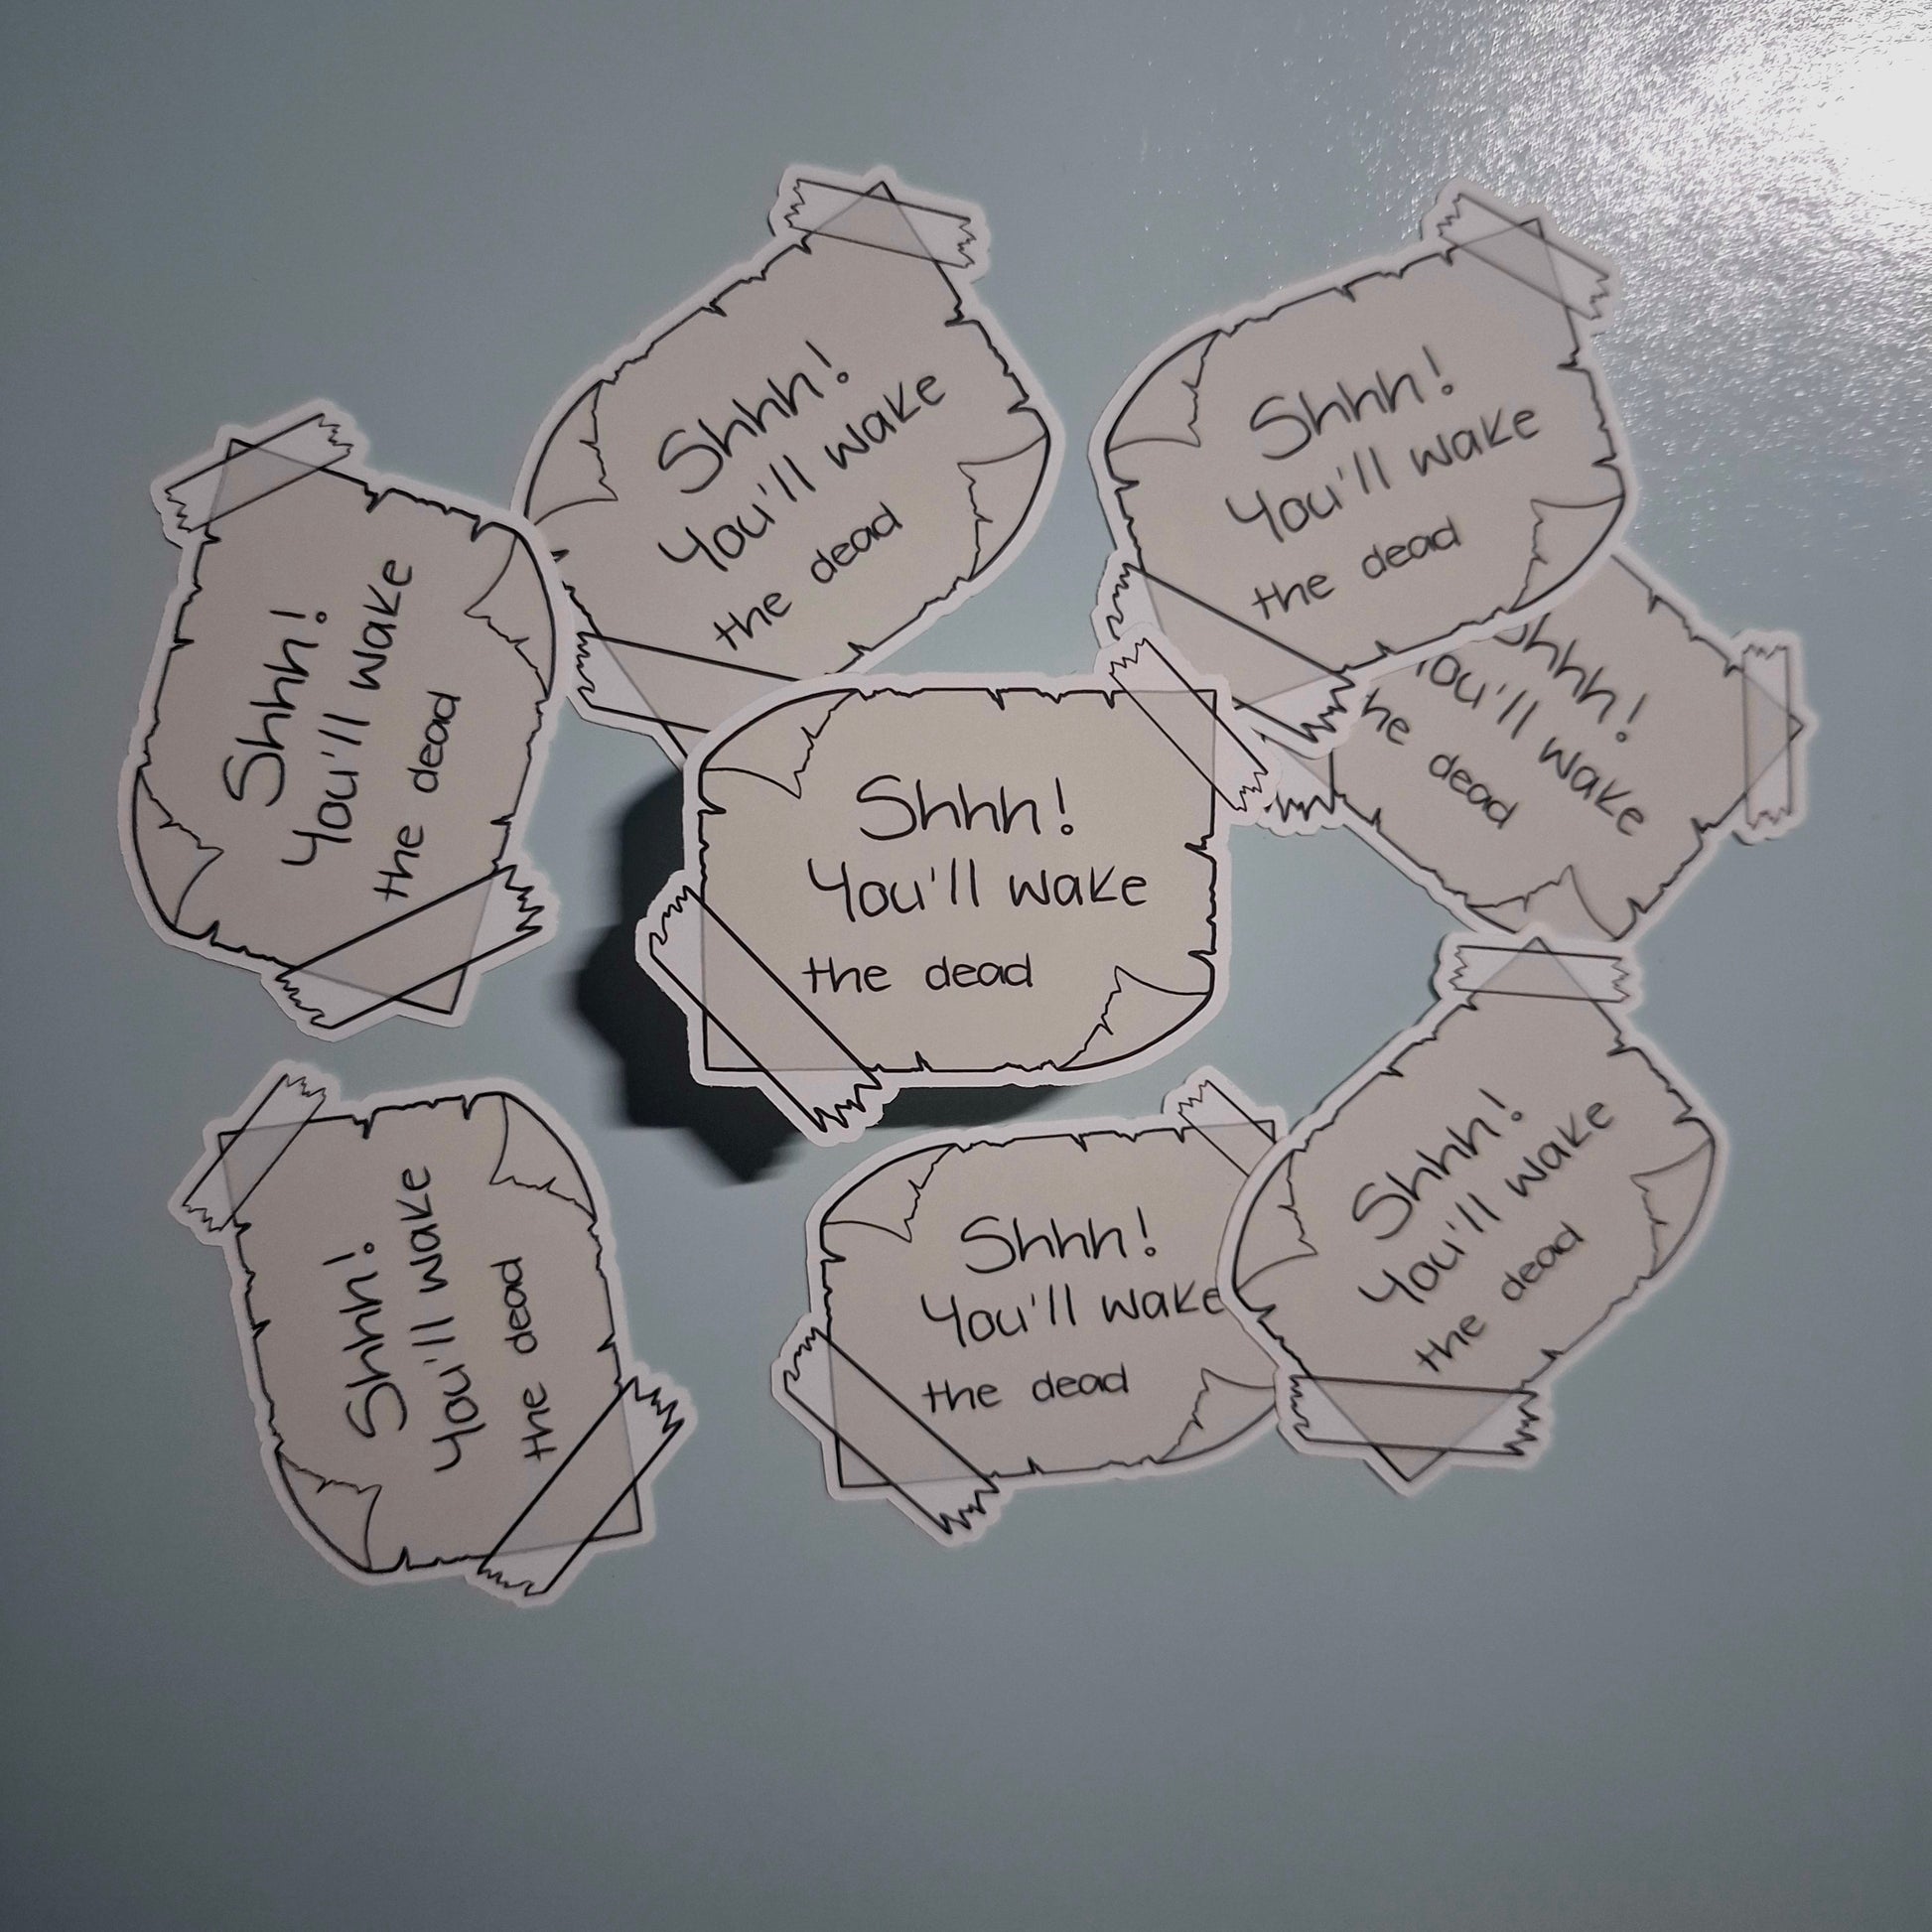 Shhh!
You'll wake
the dead
Shhh!
You'll wake
the dead
Shhh!
You'll wake
the dead
Shhh!
You'll wake
the dead
Shhh!
You'll wake
the dead
Shhh!
You'll wake
the dead
Shhh!
You'll wake
the dead
Shhh!
You'll wake
the dead